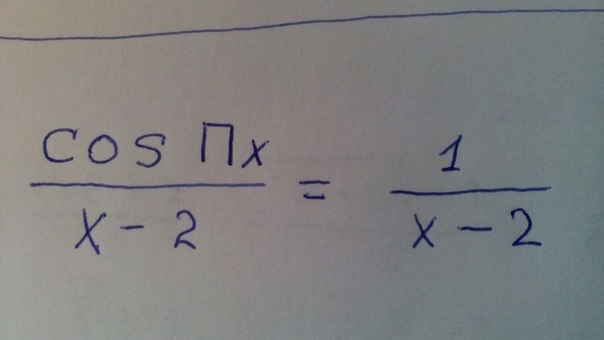 cos Пx / x - 2 = 1 / x - 2